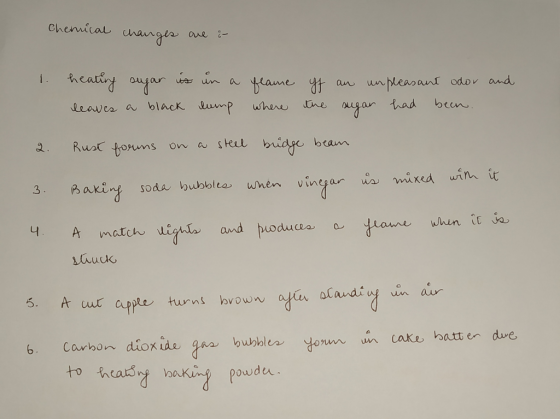 Chemical changes are :-
1. heating sugar in a flame off an unpleasant odor and
leaves a black lump where the sugar had been.
2. Rust forms on a steel bridge beam
3. Baking soda bubbles when vinegar is mixed with it
4. A match lights and produces a flame when it is
struck
5. A cut apple turns brown after standing in air
6. Carbon dioxide gas bubbles form in cake batter due
to heating baking powder.